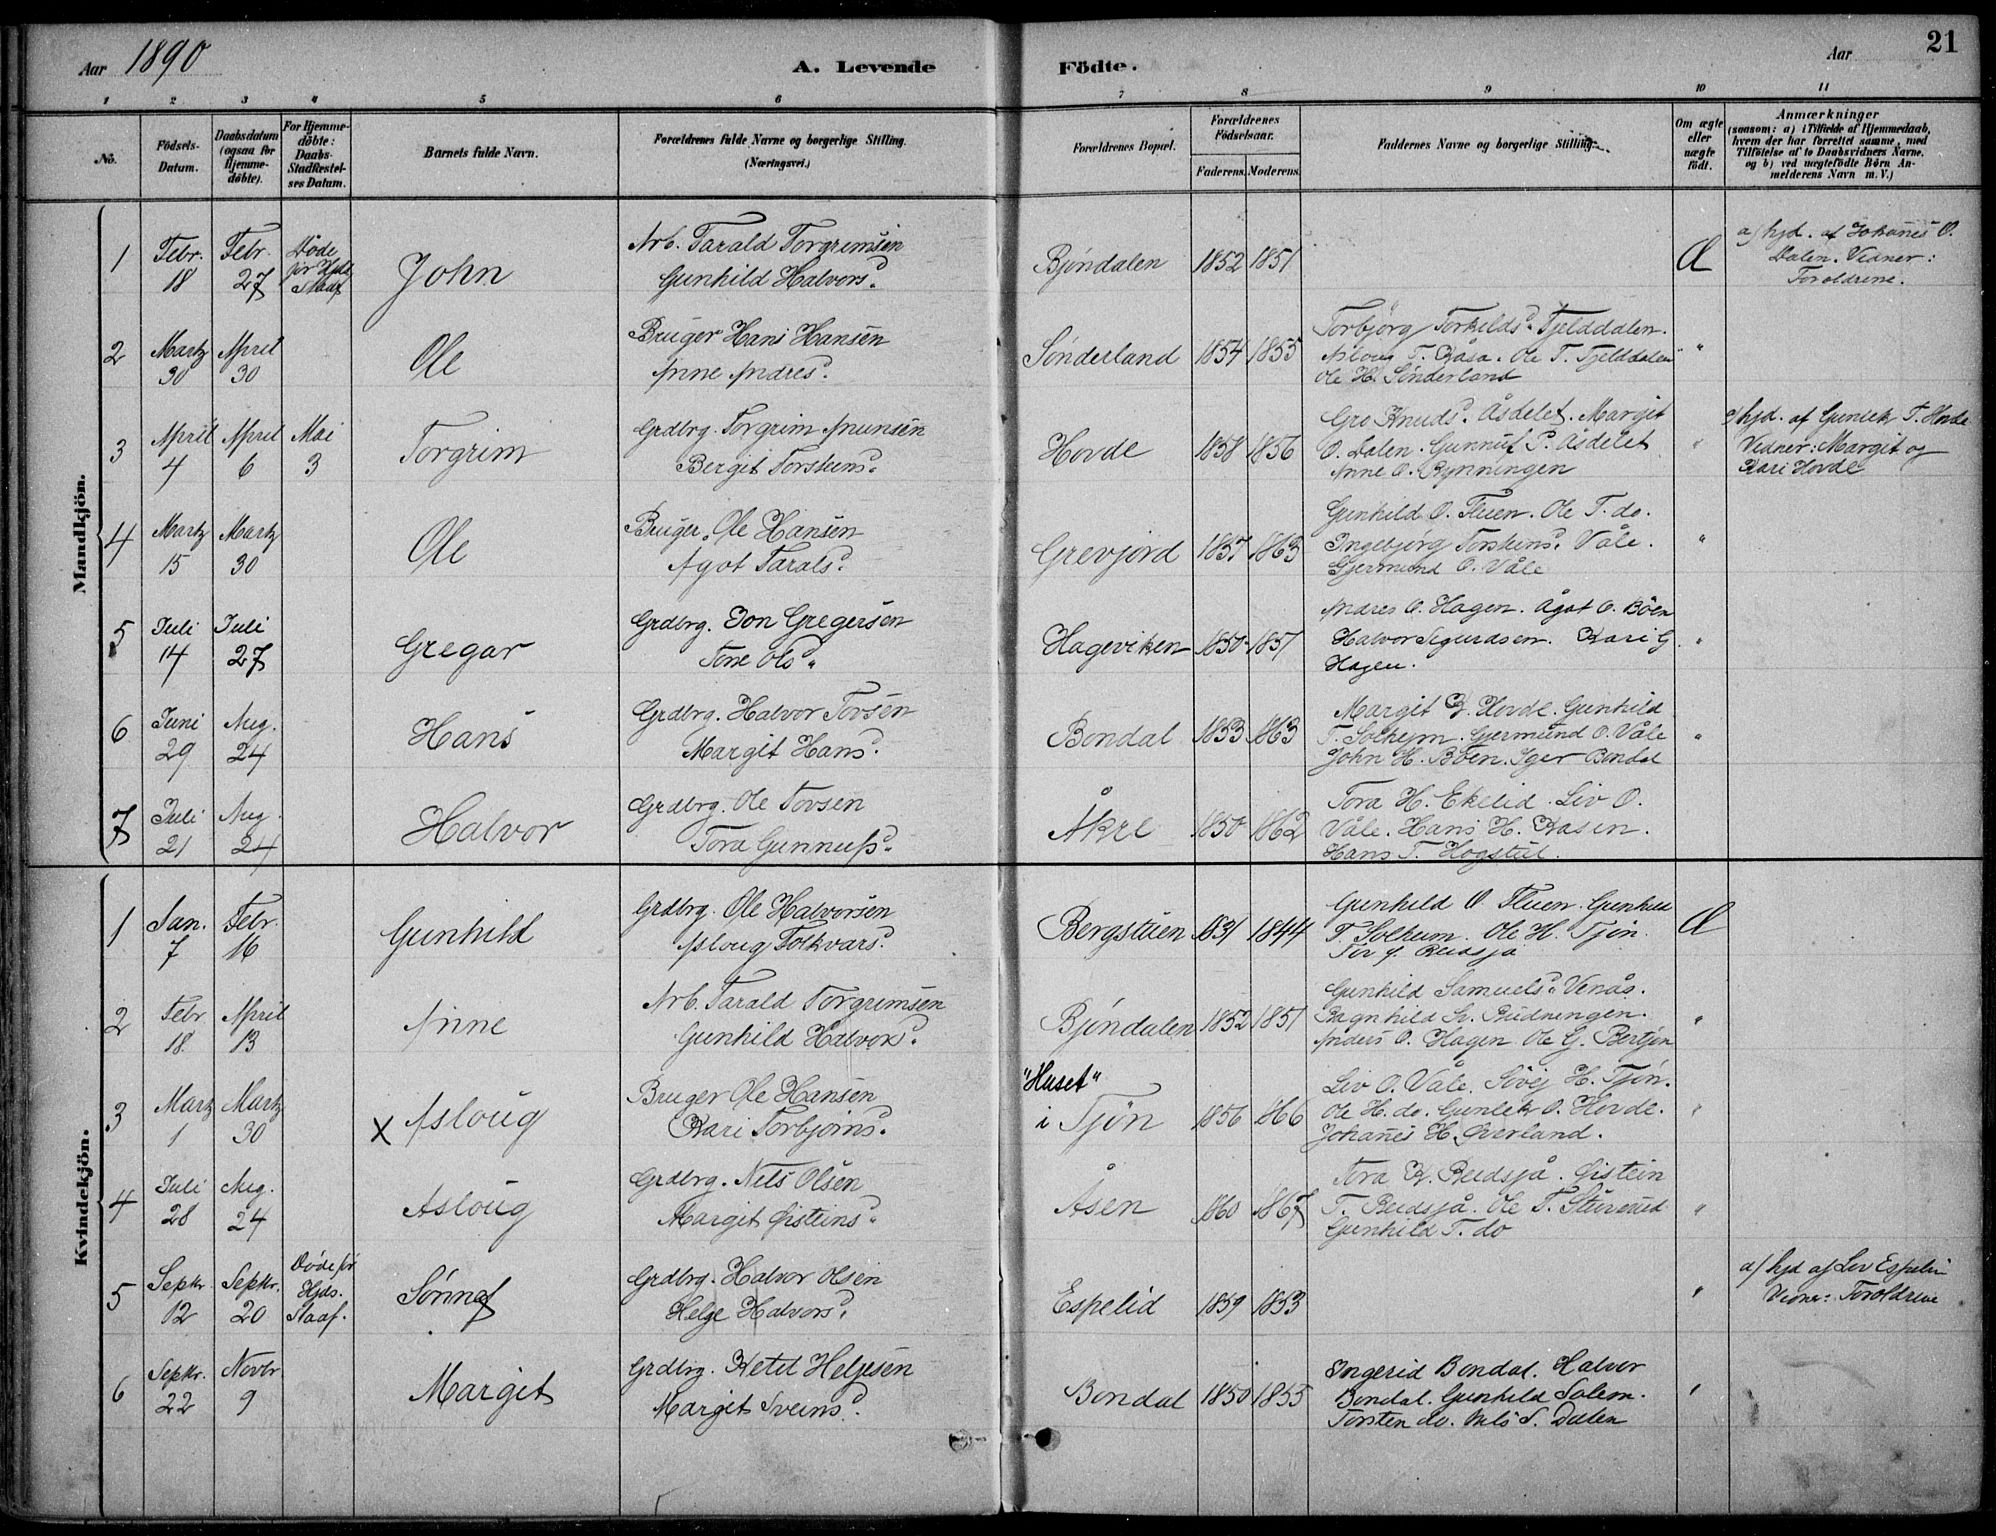 Aar 1890
A. Levende
Födte.
Aar
21
1 2 3 4 5 6 7 8 9 10 11
No.
Födsels-
Datum.
Daabsdatum
(ogsaa for
Hjemme-
döbte).
For Hjemme-
döbte:
Daabs-
Stadfæstel-
ses Datum.
Barnets fulde Navn.
Forældrenes fulde Navne og borgerlige Stilling.
(Næringsvei.)
Forældrenes Bopæl.
Forældrenes
Födselsaar.
Faderens.
Moderens.
Faddernes Navne og borgerlige Stilling.
Om ægte
eller
uægte
födt.
Anmærkninger
(saasom: a) i Tilfælde af Hjemmedaab,
hvem der har forrettet samme, med
Tilföielse af to Daabsvidners Navne,
og b) ved uægtefödte Börn An-
melderens Navn m. V.)
Mandkjön.
1
Febr.
18
Febr.
27
Døde
før Hjds
Staaf
John
Arb. Tarald Torgrimsen
Gunhild Halvorsd.
Bjöndalen
1852 1851
Æ
a/ hjd. af Johanes O.
Dalen. Vidner:
Foroldrene.
2
Martz
30
April
30
Ole
Bruger Hans Hansen
Anne Andresd.
Sönderland
1854 1855
Torbjörg Torkildsd. Fjelddalen.
Asloug T. Kåsa. Ole T. Fjelddalen
Ole H. Sönderland
"
3
April
4
April
6
Mai
3
Torgrim
Grdbrg. Torgrim Amunsen
Bergit Torsteinsd.
Hovde
1858 1856
Gro Knudsd. Åsdelet. Margit
O. Dalen. Gunnuf P. Åsdelet
Anne O. Rynningen
"
a/ hjd. af Gunlek T. Hovde
Vidner: Margit og
Kari Hovde
4
Martz
15
Martz
30
Ole
Bruger. Ole Hansen
Agot Taralsd.
Grevjord
1857 1863
Gunhild O. Fluen. Ole T. do.
Ingebjörg Torsteinsd. Våle.
Gjermund O. Våle
"
5
Juli
14
Juli
27
Gregar
Grdbrg. Jon Gregersen
Tone Olsd.
Hageviken
1850 1857
Andres O. Hagen. Ågot O. Böen
Halvor Sigurdsen. Kari G
Hagen.
"
6
Juni
29
Aug.
24
Hans
Grdbrg. Halvor Tovsen
Margit Hansd.
Bondal
1853 1863
Margit K. Hovde. Gunhild
T. Solheim. Gjermund O. Våle
John H. Böen. Bondal
"
7
Juli
21
Aug.
24
Halvor
Grdbrg. Ole Tovsen
Tora Gunnufsd.
Åkre
1850 1862
Tora H. Ekelid. Liv O.
Våle. Hans H. Kasin.
Hans T. Hogstul.
Kvindekjön.
1
Jan.
7
Febr.
16
Gunhild
Grdbrg. Ole Halvorsen
Asloug Folkvarsd.
Bergstuen
1831 1844
Gunhild O. Fluen. Gunhild
T. Solheim. Ole H. Tjön.
Tor Reidsjå
Æ
2
Febr
18
April
13
Anne
Arb. Tarald Torgrimsen
Gunhild Halvorsd.
Bjöndalen
1852 1851
Gunhild Samuelsd. Venås.
Ragnhild Sv. Rudningen.
Anders O. Hagen Ole G. Bertjön
"
3
Martz
1
Martz
30
x Asloug
Bruger Ole Hansen
Kari Torbjörnsd.
"Huset"
i Tjön
1856 1866
Liv O. Våle. H. Tjön.
Ole H. do. Gunlek O. Hovde.
Johanes H. Överland.
"
4
Juli
28
Aug.
24
Asloug
Grdbrg. Nils Olsen
Margit Øisteinsd.
Åsen
1860 1867
Tora K. Reidsjå. Øistein
T. Reidsjå. Ole T.
Gunhild T. do
"
5
Septbr.
12
Septbr.
20
Døde før
Hjds.
Staaf.
Sønnef
Grdbrg. Halvor Olsen
Helge Halvorsd.
Espelid
1859 1853
"
a/ hjd af Lov Espelin
Vidner: Foroldrene
6
Septbr.
22
Novbr
9
Margit
Grdbrg. Ketil Helgesen
Margit Sveinsd.
Bondal
1850 1855
Ingerid Bondal. Halvor
Bondal. Gunhild Solem.
Torsten do. Nils S. Dalen
"